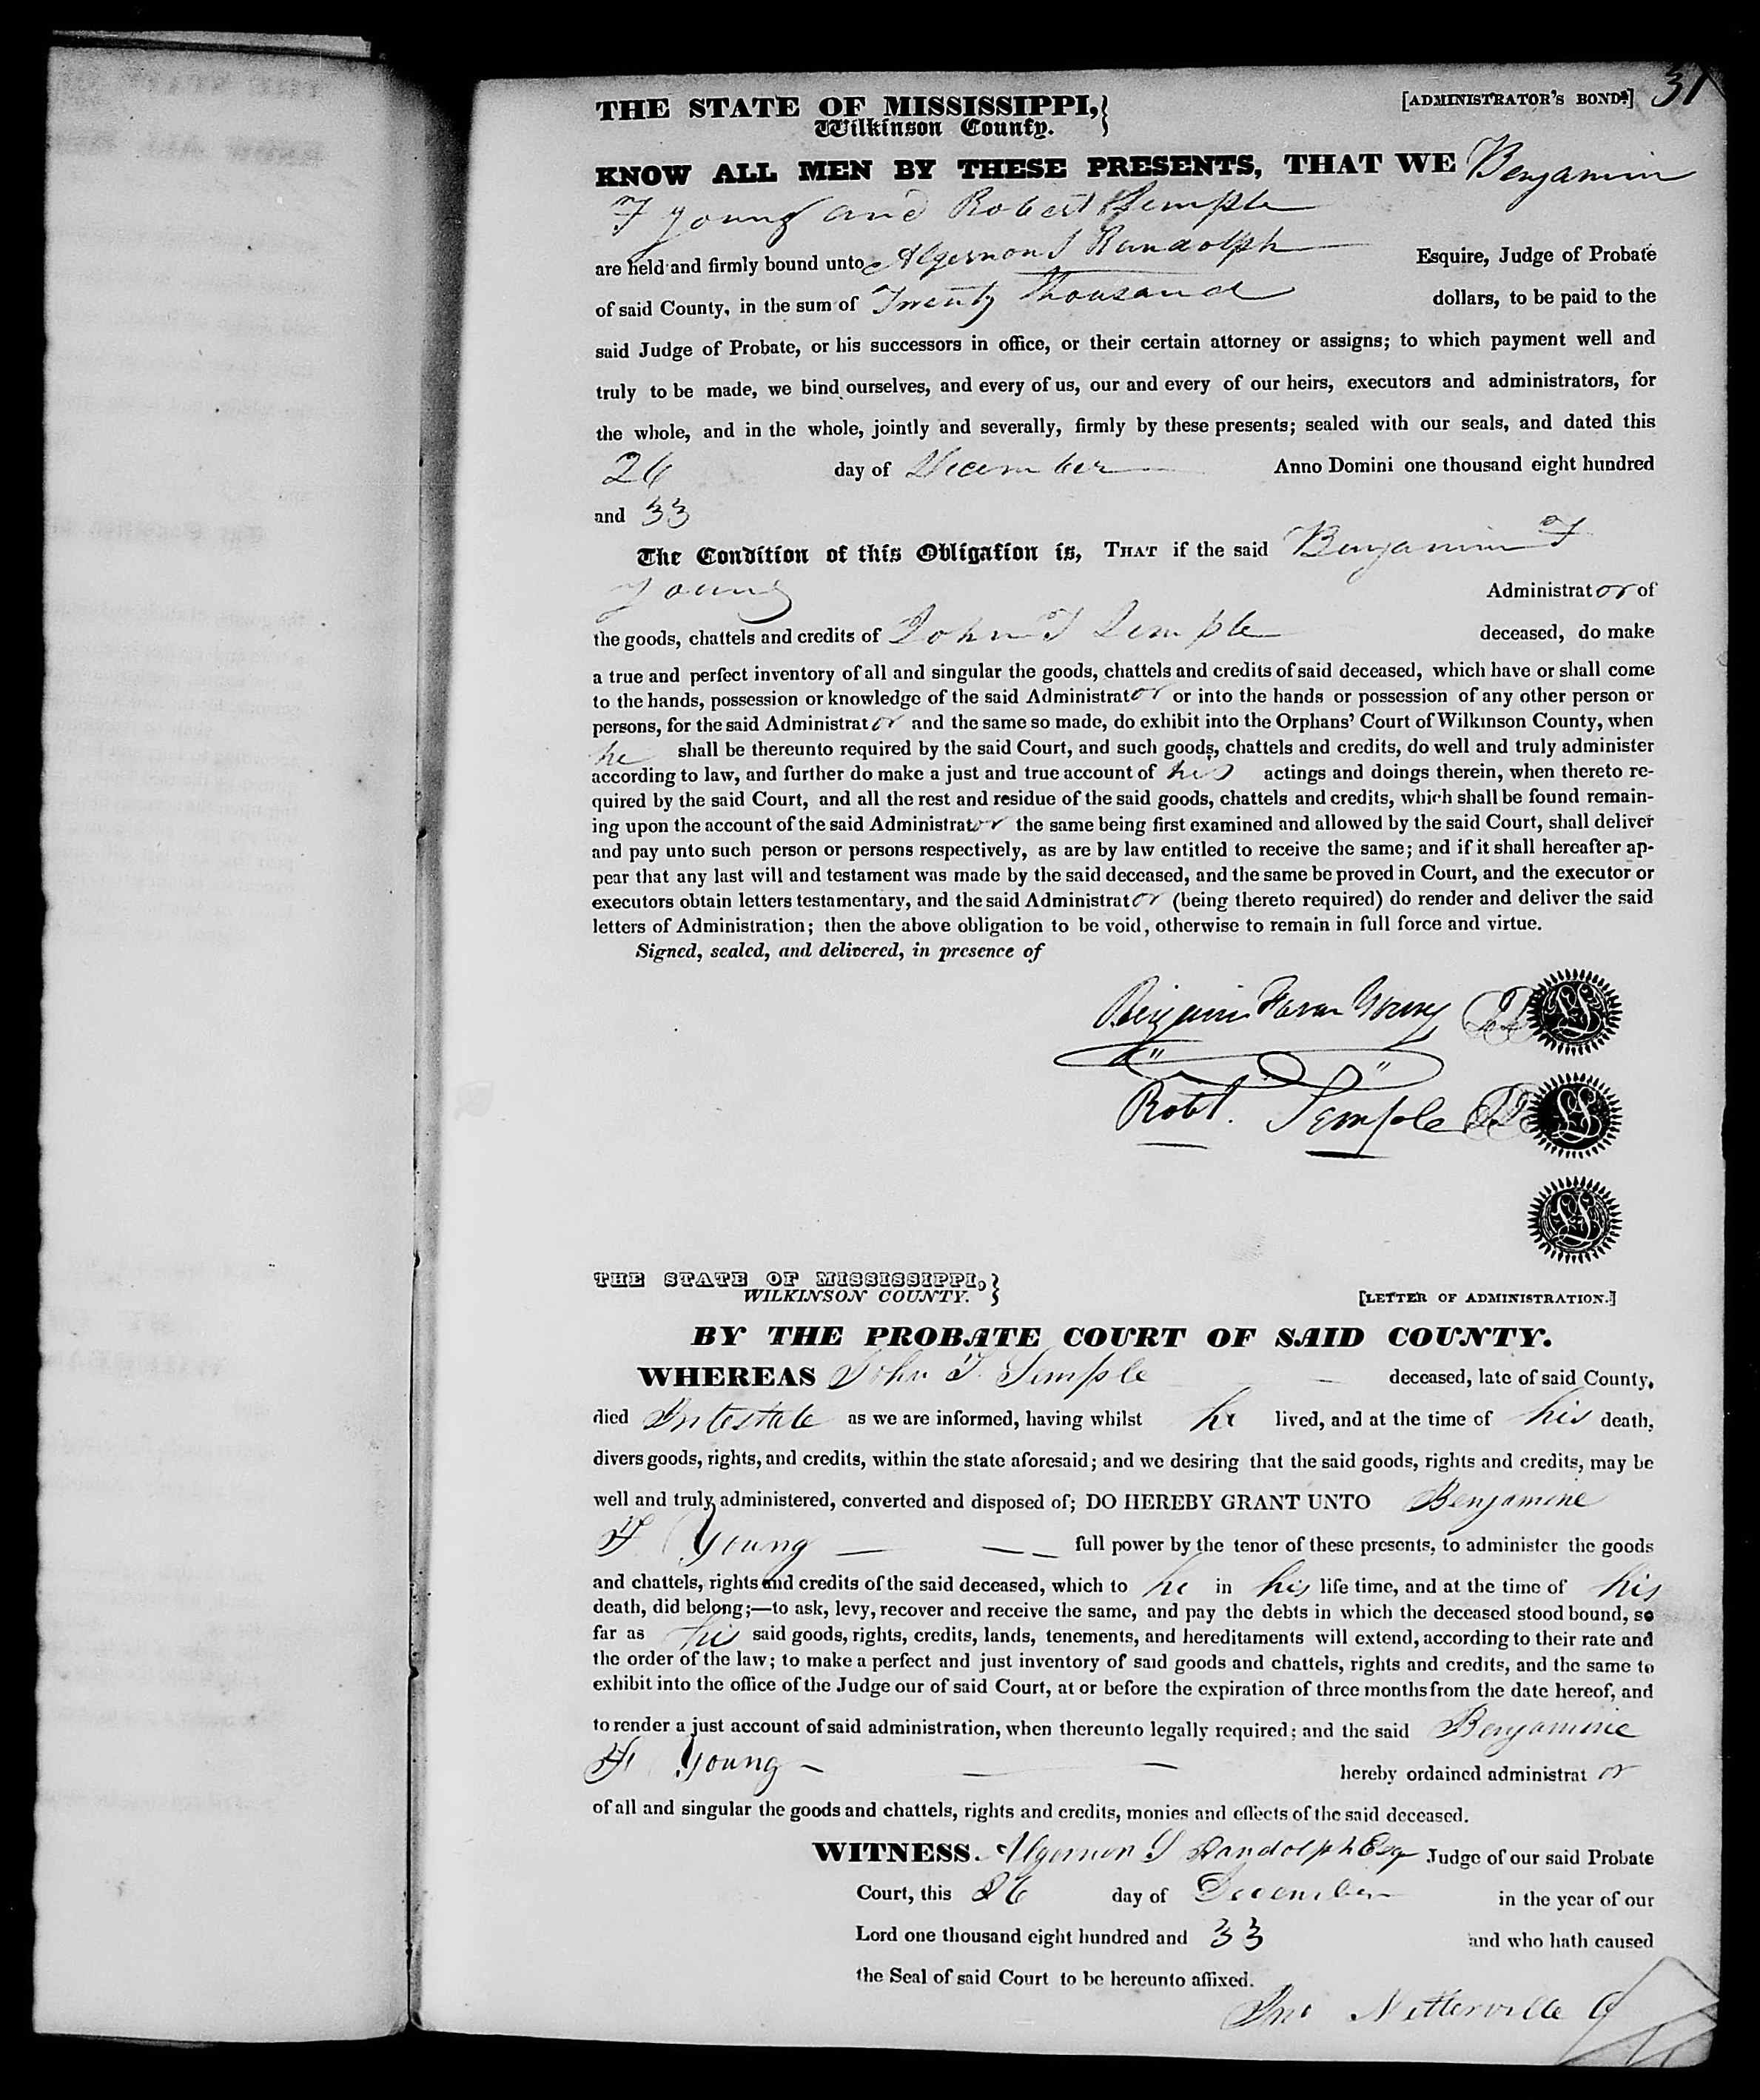 [ADMINISTRATOR'S BOND.] 31
THE STATE OF MISSISSIPPI,}
Wilkinson County.
KNOW ALL MEN BY THESE PRESENTS, THAT WE Benjamin
F Young and Robert Semple
are held and firmly bound unto Algernon S Randolph Esquire, Judge of Probate
of said County, in the sum of Twenty Thousand dollars, to be paid to the
said Judge of Probate, or his successors in office, or their certain attorney or assigns; to which payment well and
truly to be made, we bind ourselves, and every of us, our and every of our heirs, executors and administrators, for
the whole, and in the whole, jointly and severally, firmly by these presents; sealed with our seals, and dated this
26 day of December Anno Domini one thousand eight hundred
and 33
The Condition of this Obligation is, THAT if the said Benjamin F
Young Administrator of
the goods, chattels and credits of John T Semple deceased, do make
a true and perfect inventory of all and singular the goods, chattels and credits of said deceased, which have or shall come
to the hands, possession or knowledge of the said Administrator or into the hands or possession of any other person or
persons, for the said Administrator and the same so made, do exhibit into the Orphans' Court of Wilkinson County, when
he shall be thereunto required by the said Court, and such goods, chattels and credits, do well and truly administer
according to law, and further do make a just and true account of his actings and doings therein, when thereto re-
quired by the said Court, and all the rest and residue of the said goods, chattels and credits, which shall be found remain-
ing upon the account of the said Administrator the same being first examined and allowed by the said Court, shall deliver
and pay unto such person or persons respectively, as are by law entitled to receive the same; and if it shall hereafter ap-
pear that any last will and testament was made by the said deceased, and the same be proved in Court, and the executor or
executors obtain letters testamentary, and the said Administrator (being thereto required) do render and deliver the said
letters of Administration; then the above obligation to be void, otherwise to remain in full force and virtue.
Signed, sealed, and delivered, in presence of
Benjamin Farar Young LS
Robt. Semple LS
LS
THE STATE OF MISSISSIPPI,}
WILKINSON COUNTY.
[LETTER OF ADMINISTRATION.]
BY THE PROBATE COURT OF SAID COUNTY.
WHEREAS John T. Semple deceased, late of said County,
died Intestate as we are informed, having whilst he lived, and at the time of his death,
divers goods, rights, and credits, within the state aforesaid; and we desiring that the said goods, rights and credits, may be
well and truly administered, converted and disposed of; DO HEREBY GRANT UNTO Benjamine
F Young full power by the tenor of these presents, to administer the goods
and chattels, rights and credits of the said deceased, which to he in his life time, and at the time of his
death, did belong;—to ask, levy, recover and receive the same, and pay the debts in which the deceased stood bound, so
far as his said goods, rights, credits, lands, tenements, and hereditaments will extend, according to their rate and
the order of the law; to make a perfect and just inventory of said goods and chattels, rights and credits, and the same to
exhibit into the office of the Judge our of said Court, at or before the expiration of three months from the date hereof, and
to render a just account of said administration, when thereunto legally required; and the said Benjamine
F Young hereby ordained administrator
of all and singular the goods and chattels, rights and credits, monies and effects of the said deceased.
WITNESS. Algernon S Randolph Esq Judge of our said Probate
Court, this 26 day of December in the year of our
Lord one thousand eight hundred and 33 and who hath caused
the Seal of said Court to be hereunto affixed.
Jno Netterville